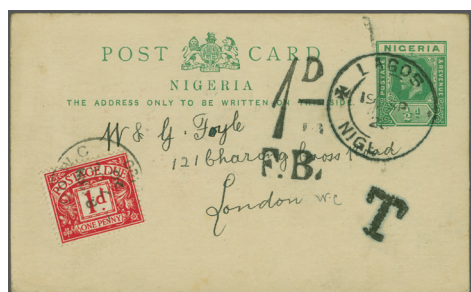 POST CARD
NIGERIA
THE ADDRESS ONLY TO BE WRITTEN ON THIS SIDE
NIGERIA
POSTAGE & REVENUE
½d
LAGOS
NIGE
1D
F.B.
T
W & G. Foyle
121 Charing Cross Road
London W.C
POSTAGE DUE
1d
ONE PENNY